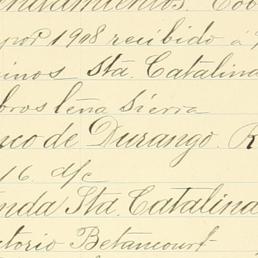 ndamientos. Cob
por 1908 recibido á
inos Sta. Catalina
bros leña Sierra
nco de Durango. R
16 d/c
enda Sta. Catalina
ctorio Betancourt